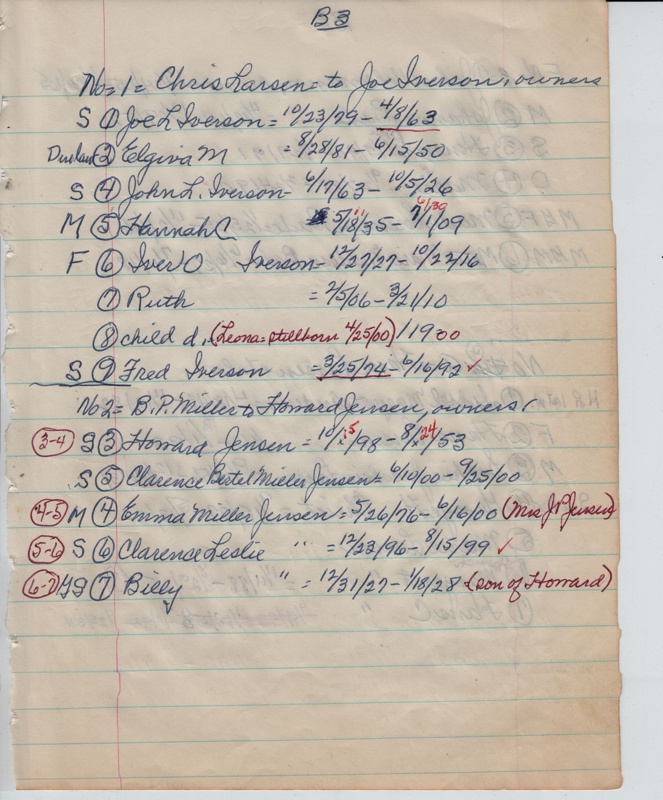 B3
No=1= Chris Larsen = to Joe Iverson, owners
S ① Joe L Iverson = 10/23/79 - 4/8/63
② Elgiva M = 8/28/81 - 6/15/50
S ④ John L. Iverson - 6/17/63 - 10/5/26
M ⑤ Hannah C 5/18/35 - 7/1/09 6/30
F ⑥ Iver O Iverson - 12/27/27 - 10/22/16
⑦ Ruth = 2/5/06 - 3/21/10
⑧ child d. (Leona = stillborn 4/25/00) 1900
S ⑨ Fred Iverson = 3/25/74 - 6/16/92 ✓
No 2 = B.P. Miller to Howard Jensen, owners
3-4 S ③ Howard Jensen = 10/15/98 - 8/24/53
S ⑤ Clarence Bertel Miller Jensen = 6/10/00 - 9/25/00
4-5 M ④ Emma Miller Jensen = 5/26/76 - 6/16/00 (Mrs J.P. Jensen)
5-6 S ⑥ Clarence Leslie " = 12/23/96 - 8/15/99 ✓
6-7 GS ⑦ Billy " = 12/31/27 - 1/18/28 (son of Howard)